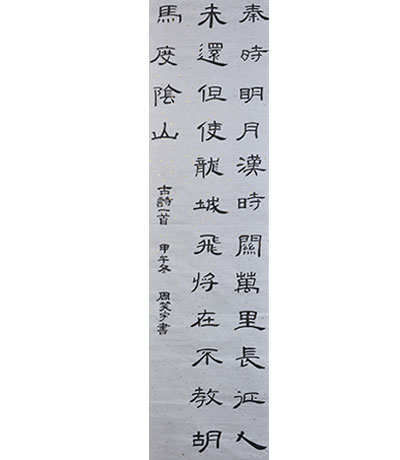 秦時明月漢時關萬里長征人
未還但使龍城飛將在不教胡
馬度陰山
古詩一首 甲午冬 周笑宇書